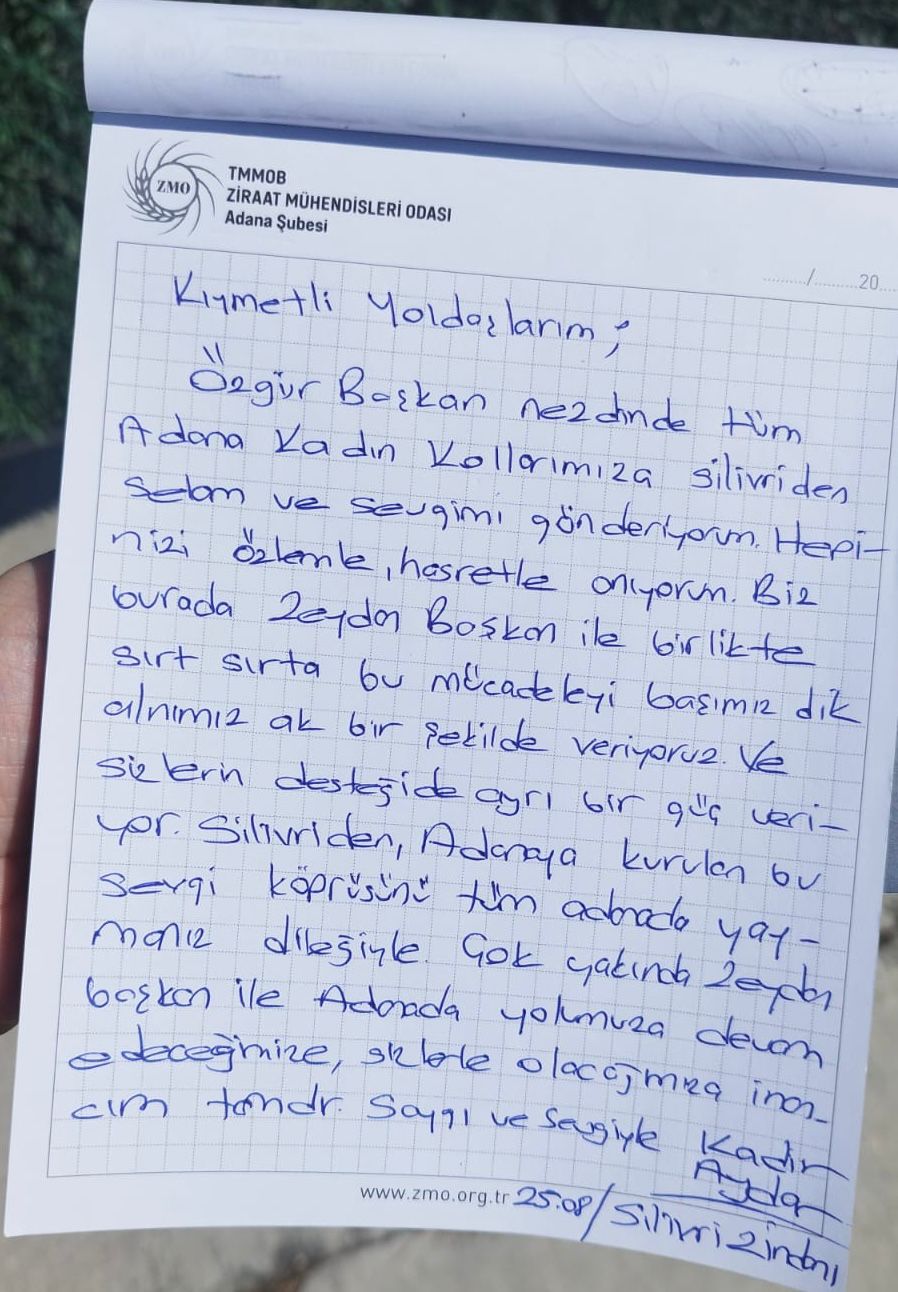 ZMO
TMMOB
ZİRAAT MÜHENDİSLERİ ODASI
Adana Şubesi
........./.........20....
Kıymetli Yoldaşlarım;
Özgür Başkan nezdinde tüm
Adana Kadın Kollarımıza silivriden
selam ve sevgimi gönderiyorum. Hepi-
nizi özlemle, hasretle anıyorum. Biz
burada Zeydan Başkan ile birlikte
sırt sırta bu mücadeleyi başımız dik
alnımız ak bir şekilde veriyoruz. Ve
sizlerin desteğide ayrı bir güç veri-
yor. Silivriden, Adanaya kurulan bu
sevgi köprüsünü tüm adanada yay-
manız dileğiyle. Çok yakında Zeydan
başkan ile Adanada yolumuza devam
edeceğimize, sizlerle olacağımıza inan-
cım tamdır. Saygı ve Sevgiyle Kadir
Aydar
www.zmo.org.tr 25.08/Silivri zindanı